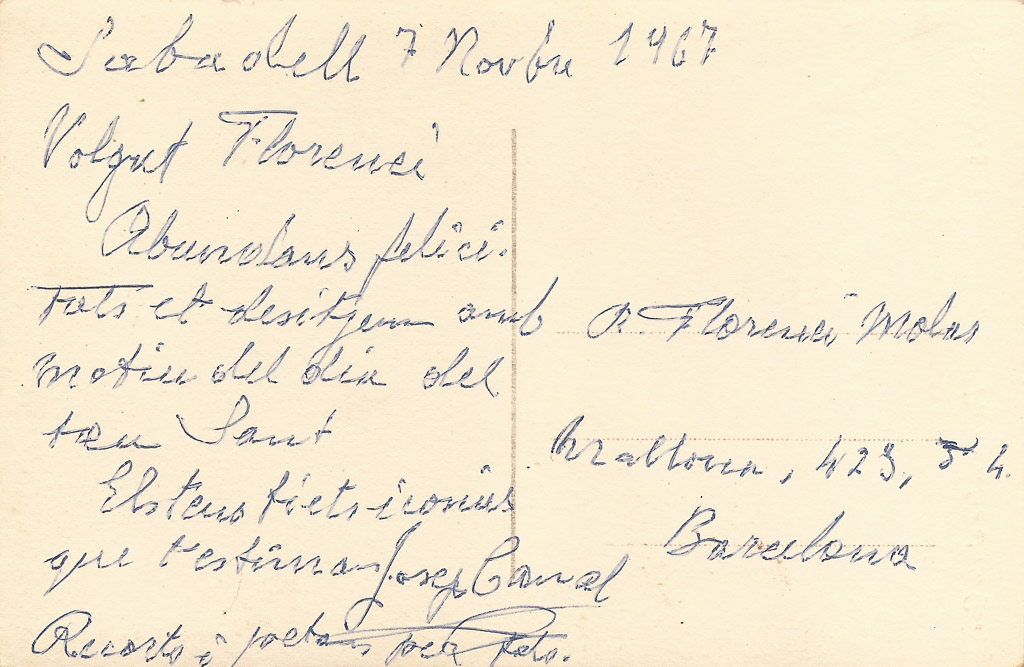 Sabadell 7 Novbre 1967
Volgut Florenci
Abundans felici-
tats et desitjem amb
motiu del dia del
teu Sant
Els teus tiets i
que t'estiman Josep Canal
Records i petons per
R. Florenci Molas
Mallorca, 423, 5 4.
Barcelona